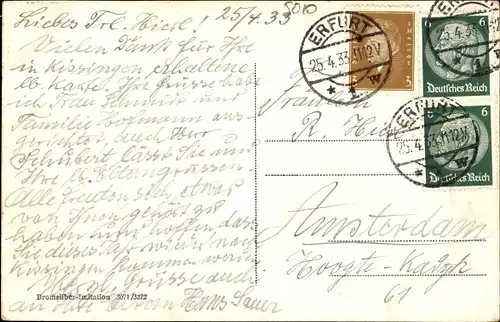 Liebes Frl. Hierl! 25/4.33
5010
Vielen Dank für Ihre
in Kissingen erhaltene
lb. Karte. Ihre Grüsse habe
ich Frau Schmidt und
Familie Hofmann aus-
gerichtet. Auch Herr
Schubert lässt Sie und
Ihre lb. Eltern grüssen.
Alle freuten sich, etwas
von Ihnen gehört zu
haben und hoffen, dass
Sie dieses Jahr wieder nach
Kissingen kommen werden.
Grüsse auch
an Ihre Eltern Hans Sauer
Bromsilber-Imitation 5071/3272
ERFURT
25.4.33.11-12V
* * w
3
6
Deutsches Reich
ERFURT
25.4.33.11-12V
* w
6
Deutsches Reich
25.4.33
Frau
R.
Amsterdam
Hoogte-Kadijk
61